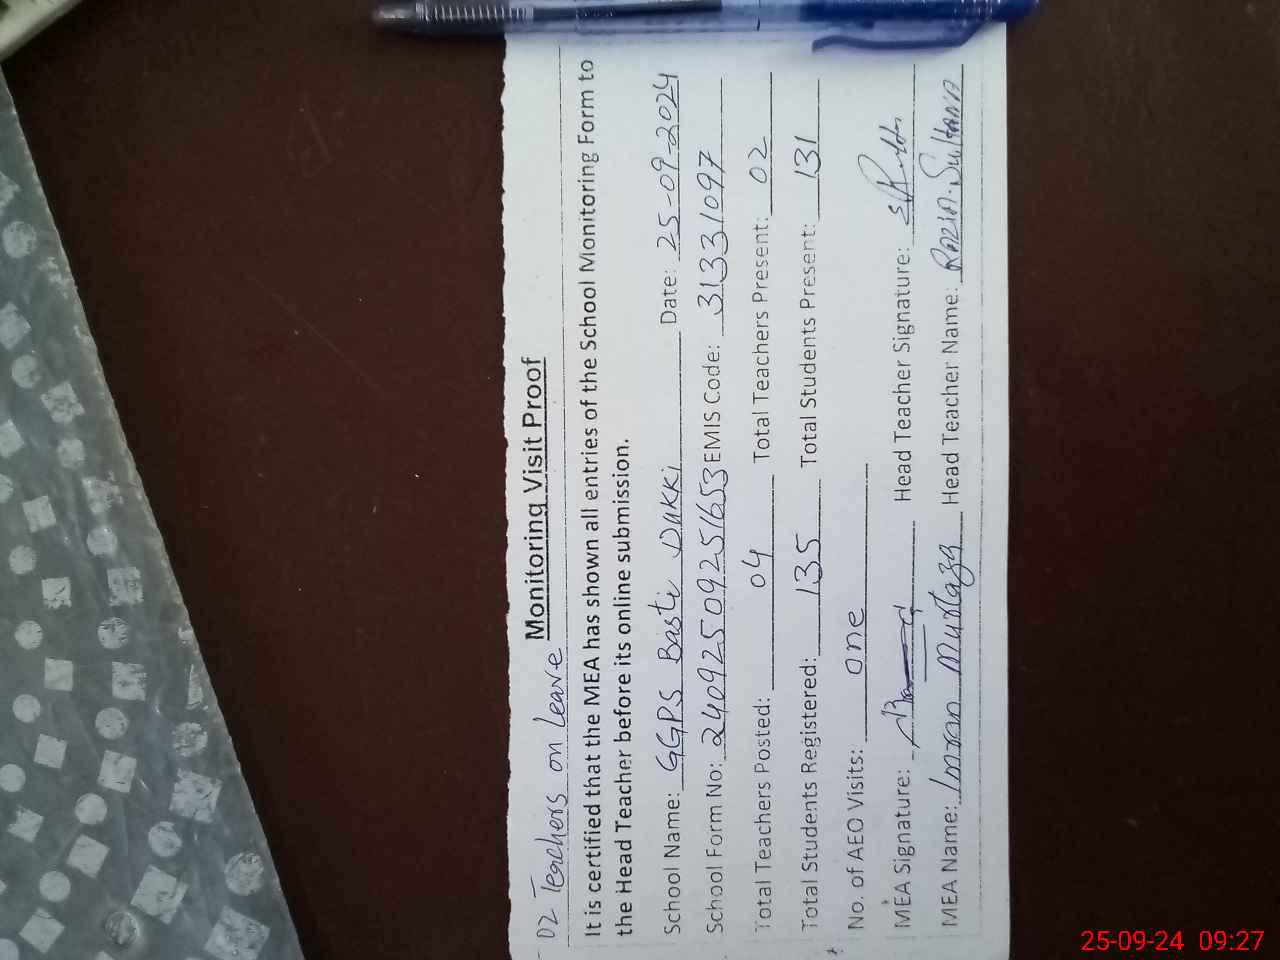 02 Teachers on leave
Monitoring Visit Proof
It is certified that the MEA has shown all entries of the School Monitoring Form to
the Head Teacher before its online submission.
School Name: GGPS Basti Dukki Date: 25-09-2024
School Form No: 240925092551653 EMIS Code: 31331097
Total Teachers Posted: 04 Total Teachers Present: 02
Total Students Registered: 135 Total Students Present: 131
No. of AEO Visits: one
MEA Signature: Head Teacher Signature:
MEA Name: Imran Murtaza Head Teacher Name: Razia Sultana
25-09-24 09:27